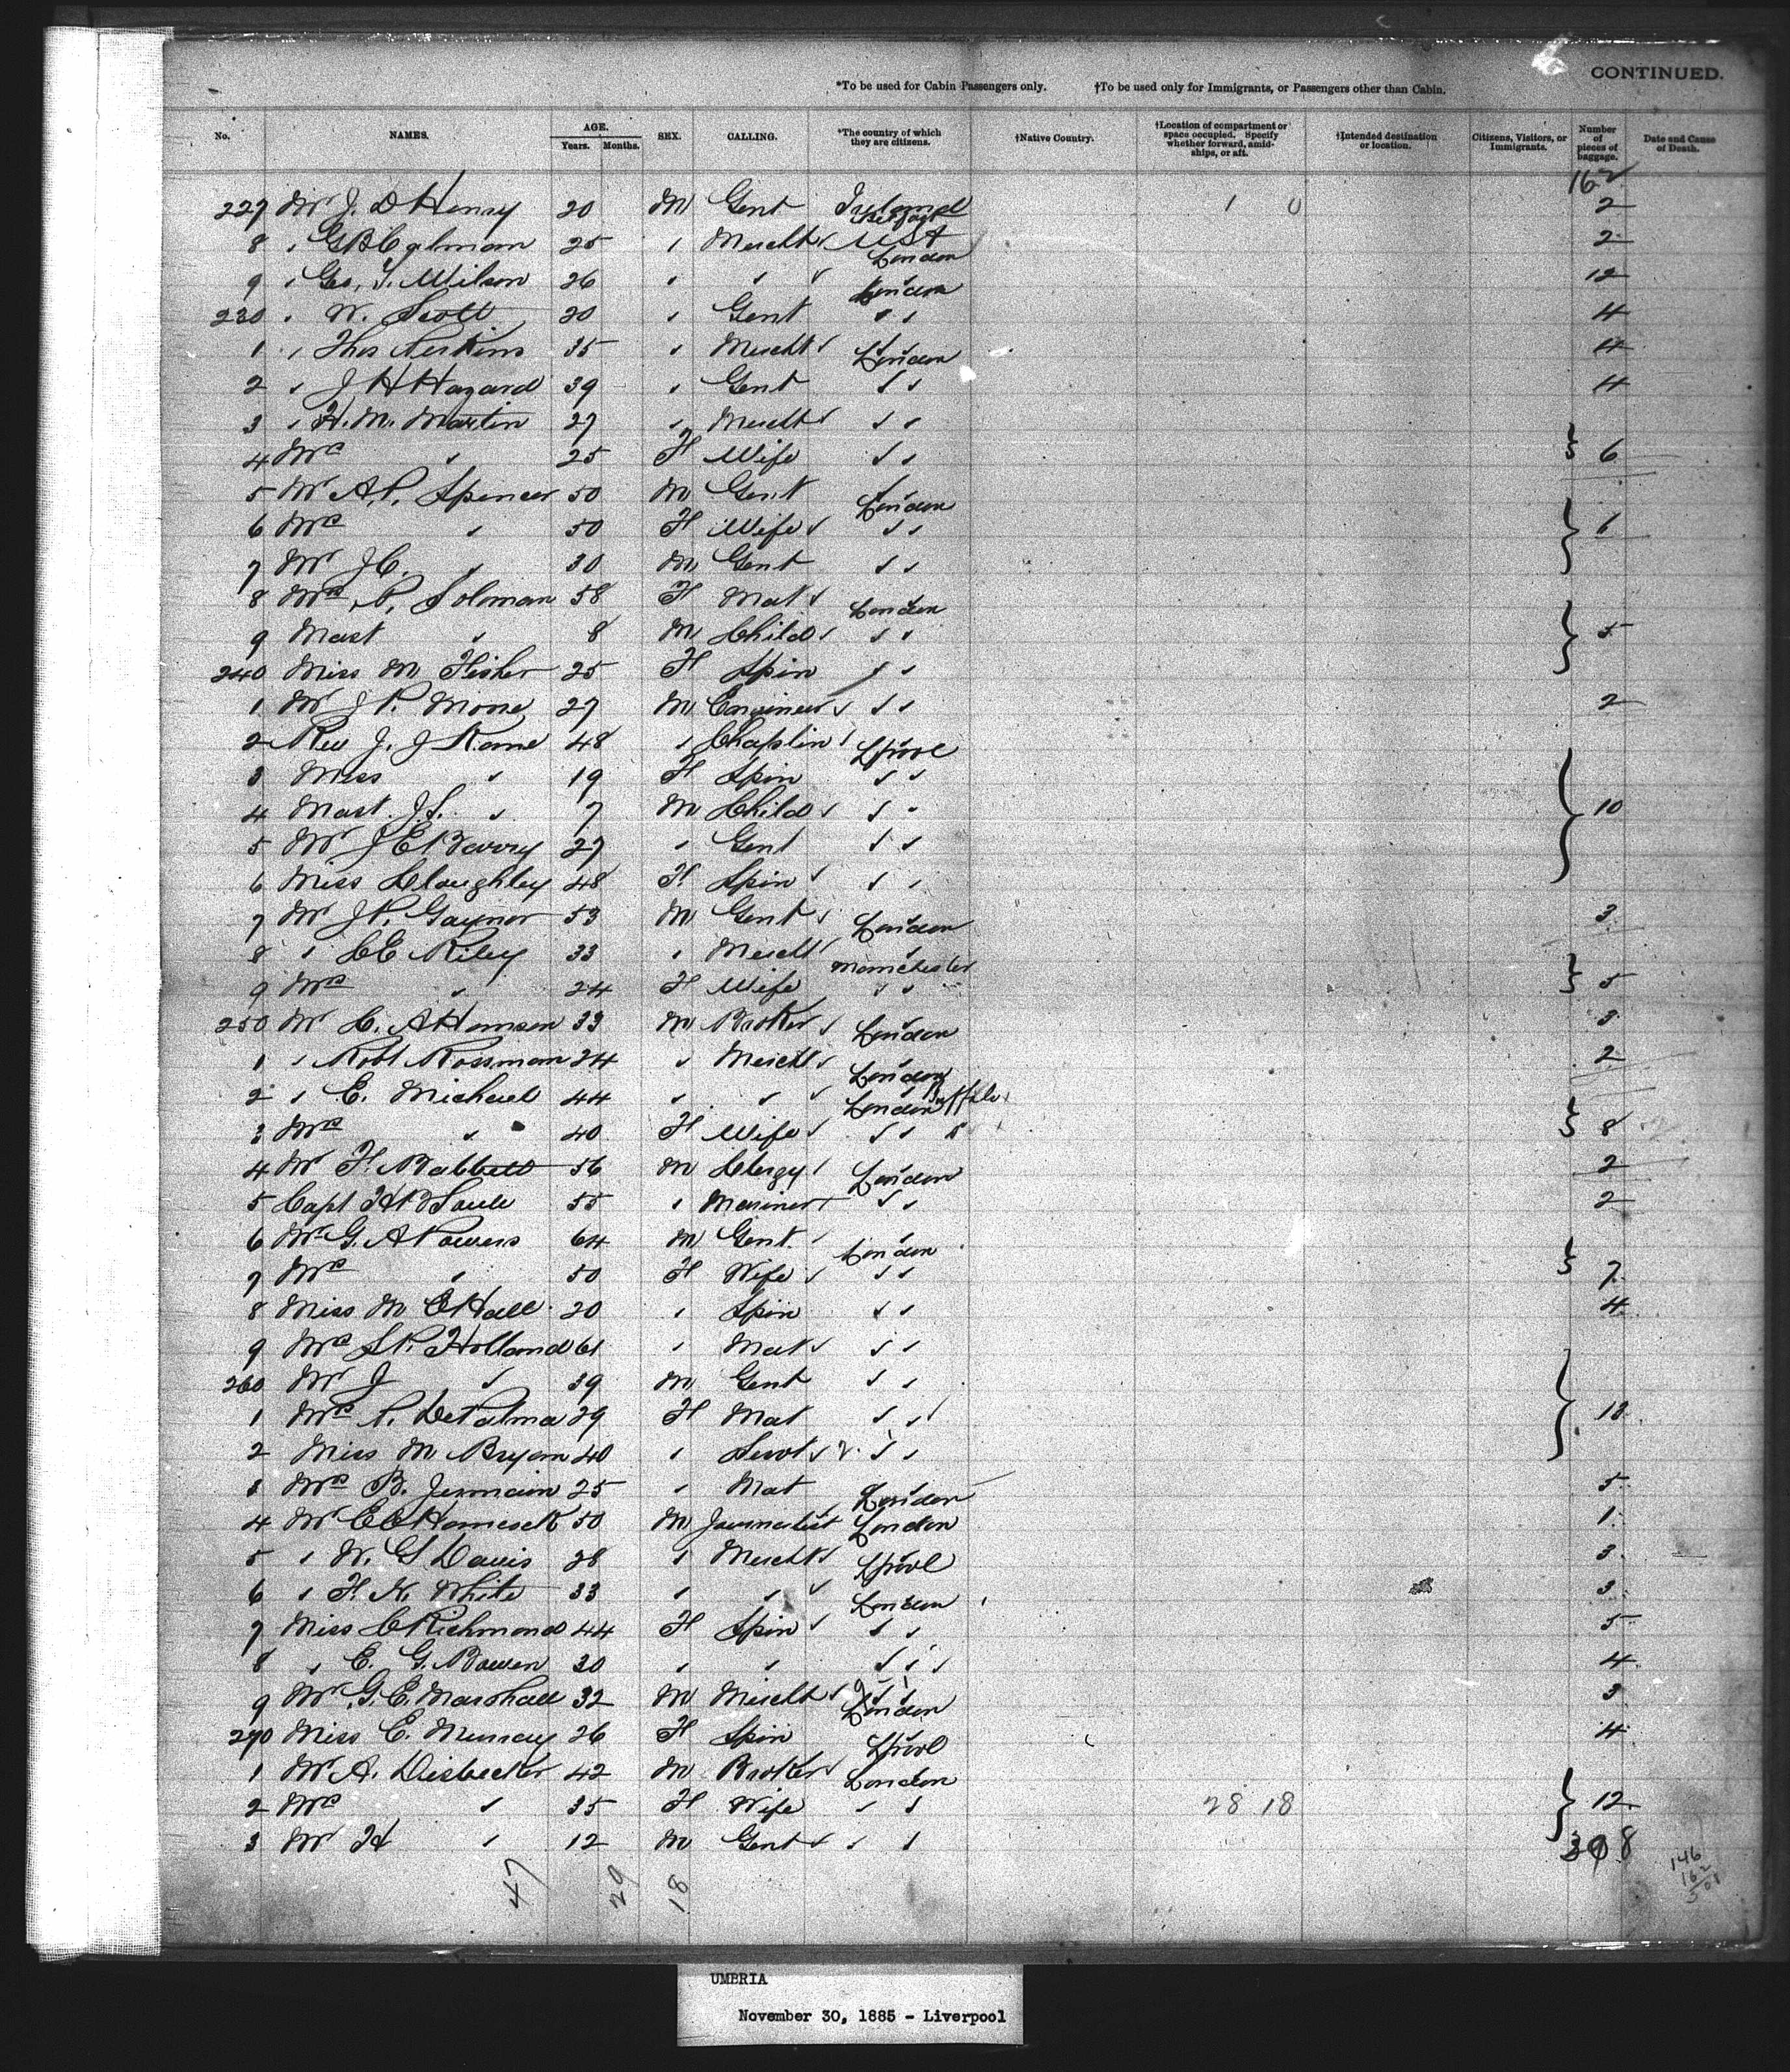 CONTINUED.
*To be used for Cabin Passengers only. †To be used only for Immigrants, or Passengers other than Cabin.
No. NAMES. AGE. Years. Months. SEX. CALLING. *The country of which they are citizens. †Native Country. †Location of compartment or space occupied. Specify whether forward, amid-ships, or aft. †Intended destination or location. Citizens, Visitors, or Immigrants. Number of pieces of baggage. Date and Cause of Death.
162
227 Mr J. D Henry 20 M Gent Ireland Belfast 1 0 2
8 " G B Calman 25 " Mercht USA London 2
9 " Geo. T. Wilson 26 " " " London 12
230 " W. Scott 20 " Gent " " 4
1 " Thos Perkins 35 " Mercht " " London 4
2 " J H Hazard 39 " Gent " " 4
3 " H. M. Martin 27 " Mercht " "
4 Mrs " 25 F Wife " " 6
5 Mr A. P. Spencer 50 M Gent " London
6 Mrs " 50 F Wife " " 6
7 Mr J C. " 30 M Gent " "
8 Mrs P. Soloman 58 F Mat " London
9 Mast " 8 M Child " " 5
240 Miss M Fisher 25 F Spin " "
1 Mr J P. Morse 27 M Engineer " " 2
2 Rev J. J Kane 48 " Chaplin " Lpool
3 Miss " 19 F Spin " "
4 Mast. J. S. " 7 M Child " " 10
5 Mr J E Barry 27 " Gent " "
6 Miss Cloughley 48 F. Spin " "
7 Mr J P. Gaynor 53 M Gent " London 3
8 " C E Riley 33 " Mercht " Manchester
9 Mrs " 24 F Wife " " 5
250 Mr C. A Hanson 33 M Broker " London 3
1 " Robt Rossman 24 " Mercht " London 2
2 " E. Michael 44 " " " London Buffalo
3 Mrs " 40 F Wife " " 8
4 Mr F. Babbett 56 M Clergy " London 2
5 Capt H B Soule 55 " Mariner " " 2
6 Mr G. A Powers 64 M Gent. " London
7 Mrs " 50 F Wife " " 7
8 Miss M E Hall 20 " Spin " " 4
9 Mrs S P. Holland 61 " Mat " "
260 Mr J " 39 M Gent " "
1 Mrs P. DePalma 29 F Mat " " 13
2 Miss M Bryan 40 " Servt " "
3 Mrs B. Jermain 25 " Mat London 5
4 Mr E C Hancock 50 M Journalist London 1
5 " W. G Davis 28 " Mercht " Lpool 3
6 " F. H. White 33 " " " London 3
7 Miss C Richmond 44 F Spin " " 5
8 " E. G. Bowen 30 " " " " 4
9 Mr G. E. Marshall 32 M Mercht " " London 3
270 Miss E. Murray 26 F Spin Lpool 4
1 Mr A. Disbecker 42 M Broker London
2 Mrs " 35 F Wife " " 28 18 12
3 Mr H " 12 M Gent " "
308
47 29 18
146
162
UMBRIA
November 30, 1885 - Liverpool